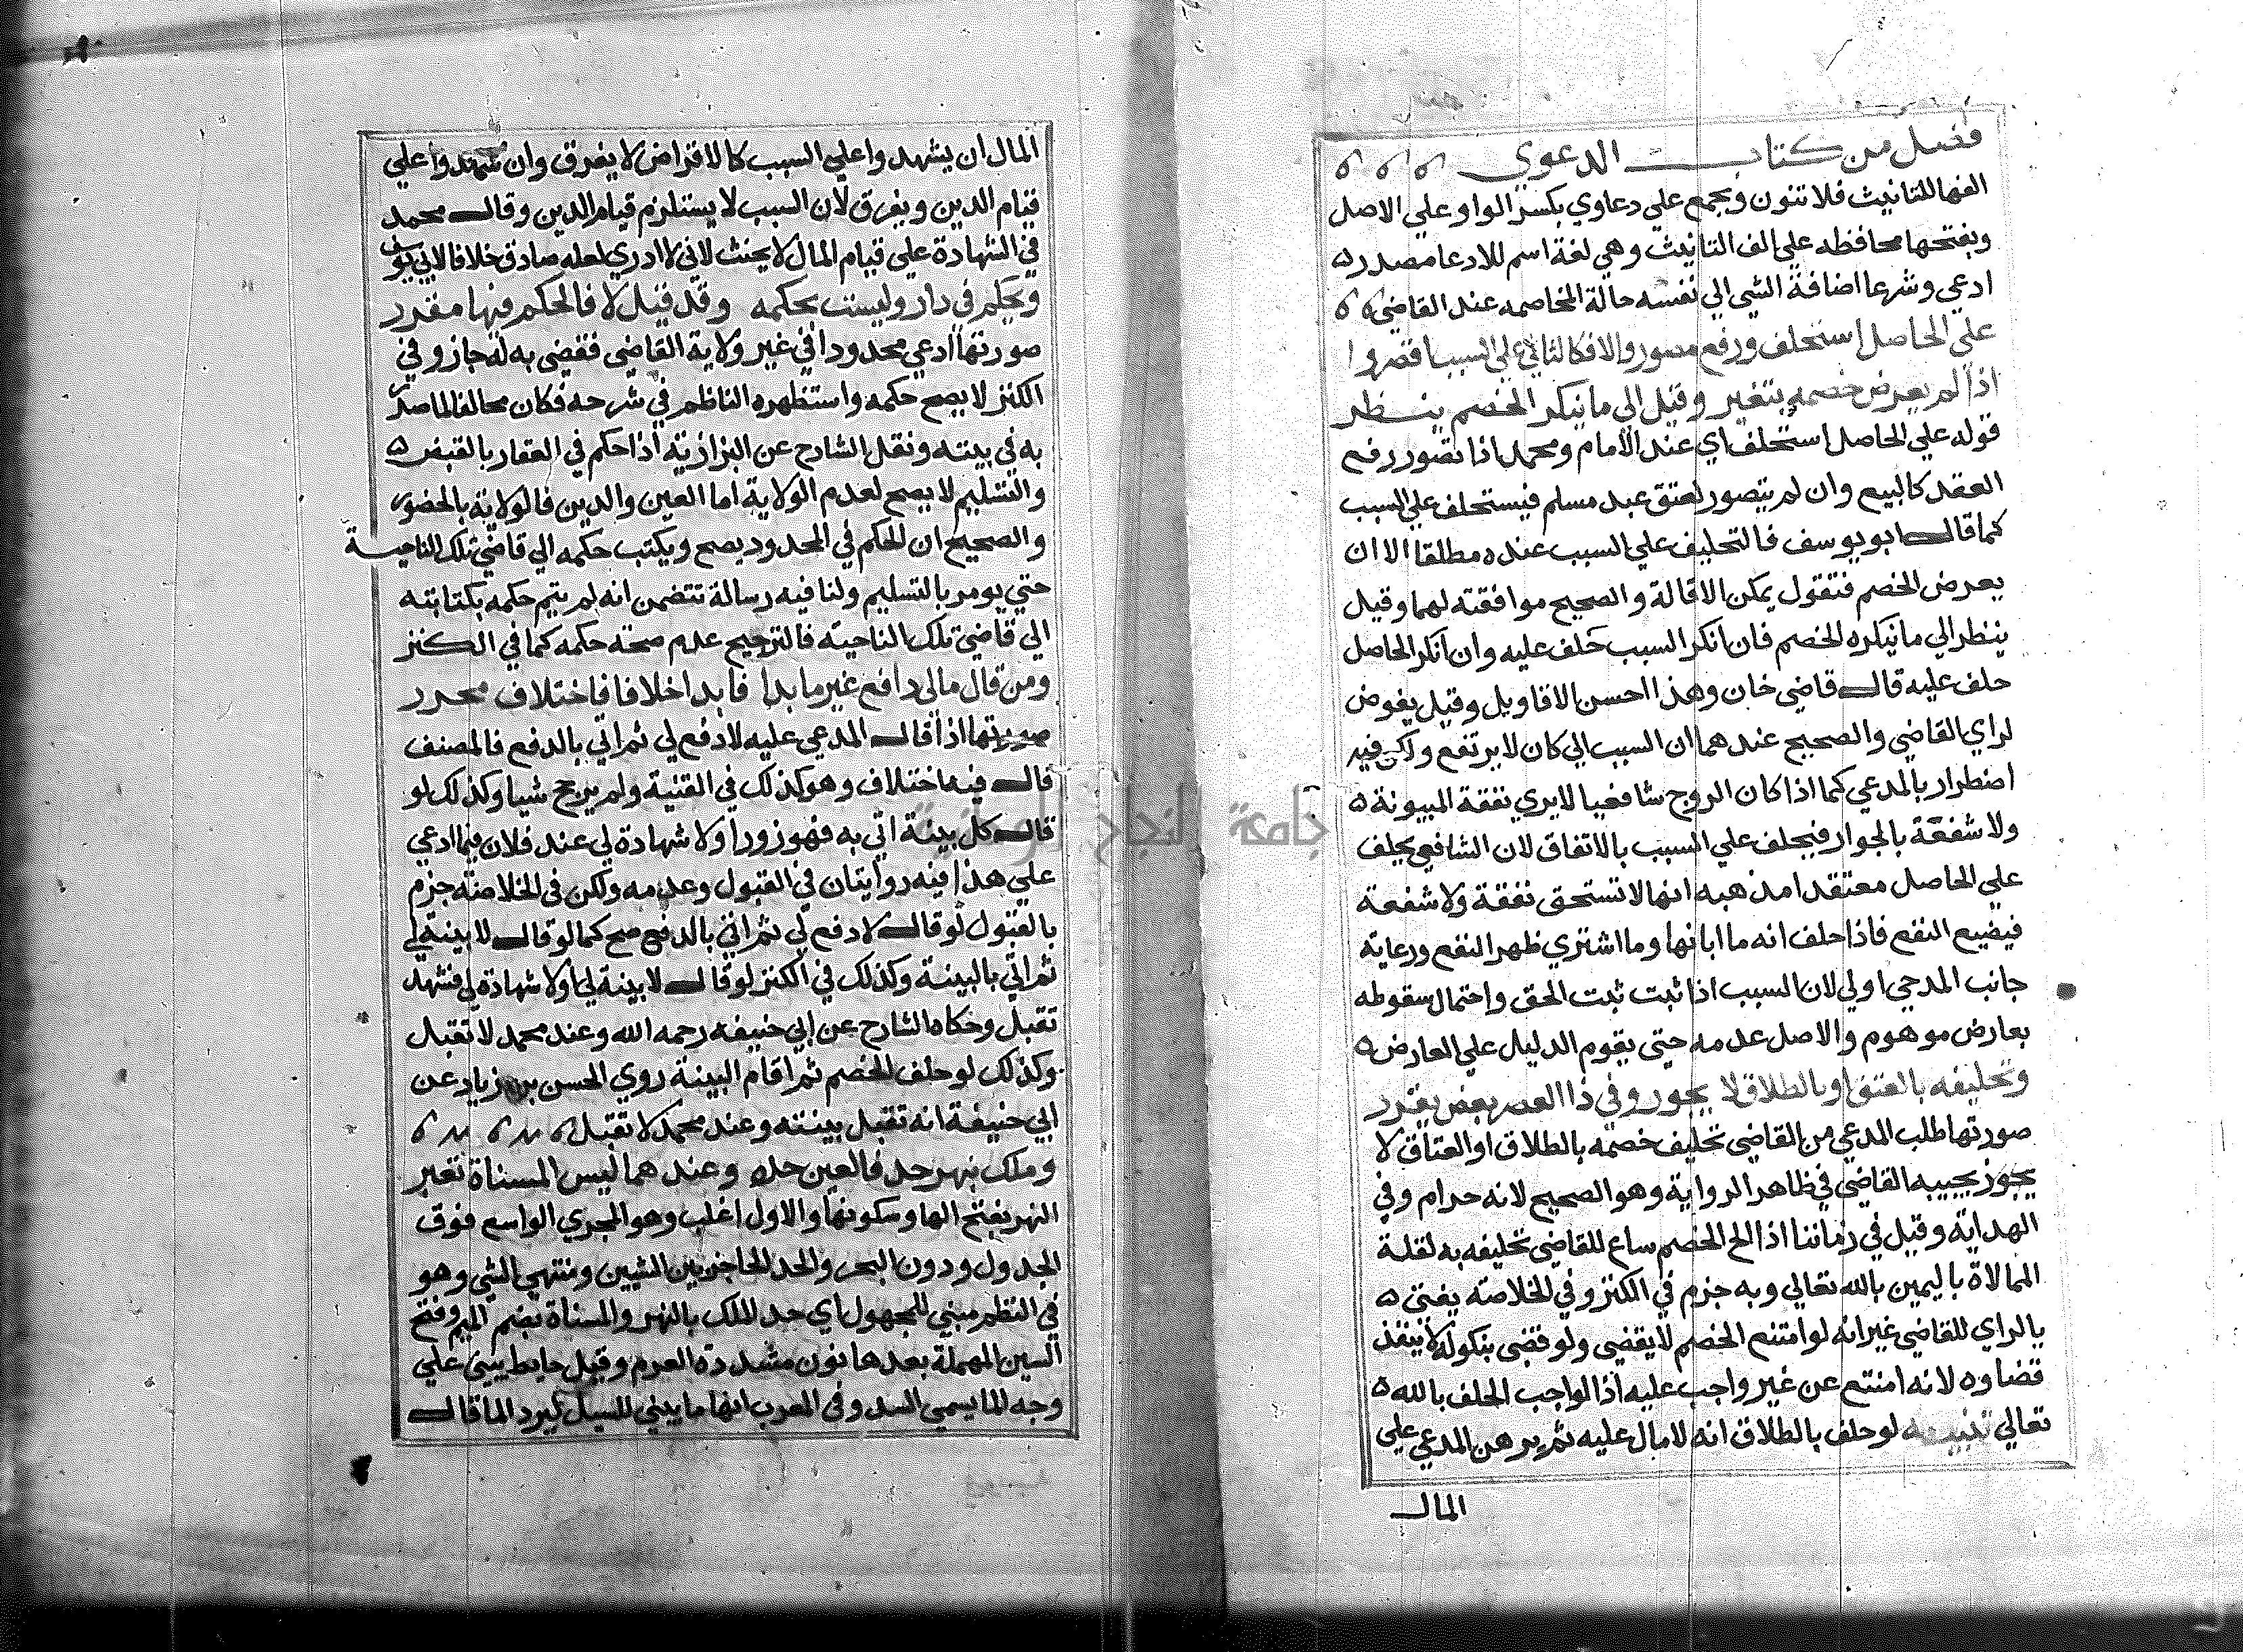 فصل من كتاب الدعوي
الفها للتانيث فلا تنون ويجمع علي دعاوي بكسر الواو علي الاصل
وبفتحها محافظه علي الف التانيث وهي لغة اسم للادعا مصدر
ادعي وشرعا اضافة الشي الي نفسه حالة المخاصمه عند القاضي
علي الحاصل استحلف ورفع مصور والا فكالثاني علي السبب اقصروا
اذا لم يعرض خصمه بتغير وقيل الي ما نيكر الخصم ينظر
قوله علي الحاصل استحلف اي عند الامام ومحمد اذا تصور رفع
العقد كالبيع وان لم يتصور لعتق عبد مسلم فيستحلف علي السبب
كما قال ابو يوسف فالتحليف علي السبب عنده مطلقا الا ان
يعرض الخصم فتقول يمكن الاقالة والصحيح موافقته لهما وقيل
ينظر الي ما نيكره الخصم فان انكر السبب حلف عليه وان انكر الحاصل
حلف عليه قال قاضي خان وهذا احسن الاقاويل وقيل يفوض
لراي القاضي والصحيح عندهما ان السبب الي كان لا يرتفع ولكن فيه
اضطرار بالمدعي كما اذا كان الزوج شافعيا لا يري نفقة المبيونة
ولا شفعة بالجوار فيحلف علي السبب بالاتفاق لان الشافعي يحلف
علي الحاصل معتقدا مذهبه انها لا تستحق نفقة ولا شفعة
فيضيع النفع فاذا حلف انه ما ابانها وما اشتري ظهر النفع ورعاية
جانب المدعي اولي لان السبب اذا ثبت ثبت الحق واحتمال سقوطه
بعارض موهوم والاصل عدمه حتي يقوم الدليل علي العارض
وتحليفه بالعتق او بالطلاق لا يجوز وفي ذا العصر بعض يقرر
صورتها طلب المدعي من القاضي تحليف خصمه بالطلاق او العتاق لا
يجوز يجيبه القاضي في ظاهر الرواية وهو الصحيح لانه حرام وفي
الهداية وقيل في زماننا اذا الح الخصم ساغ للقاضي تحليفه به لقلة
المبالاة باليمين بالله تعالي وبه جزم في الكنز وفي الخلاصة يفتي
بالراي للقاضي غير انه لو امتنع الخصم لا يقضي ولو قضي بنكوله لا ينفذ
قضاوه لانه امتنع عن غير واجب عليه اذ الواجب الحلف بالله
تعالي تنبيه لو حلف بالطلاق انه لا مال عليه ثم برهن المدعي علي
المال
المال ان يشهدوا علي السبب كالاقراض لا يفرق وان شهدوا علي
قيام الدين ويفرق لان السبب لا يستلزم قيام الدين وقال محمد
في الشهادة علي قيام المال لا يحنث لاني لا ادري لعله صادق خلافا لابي يوسف
ويحكم في دار وليست بحكمه وقد قيل لا فالحكم فيها مقرر
صورتها ادعي محدودا في غير ولاية القاضي فقضي به له جاز وفي
الكنز لا يصح حكمه واستظهره الناظم في شرحه فكان مخالفا لما صدر
به في بيته ونقل الشارح عن البزازية اذا حكم في العقار بالقبض
والتسليم لا يصح لعدم الولاية اما العين والدين فالولاية بالحضور
والصحيح ان الحكم في المحدود يصح ويكتب حكمه الي قاضي تلك الناحية
حتي يومر بالتسليم ولنا فيه رسالة تتضمن انه لم يتم حكمه بكتابته
الي قاضي تلك الناحيه فالترجيح عدم صحة حكمه كما في الكنز
ومن قال مالي دافع غير ما بدا فابدا خلافا فاختلاف محرر
صورتها اذا قال المدعي عليه لا دفع لي ثم اتي بالدفع فالمصنف
قال فيه اختلاف وهو كذلك في القنية ولم يرجح شيا وكذلك لو
قال كل بينة اتي به فهو زور او لا شهادة لي عند فلان فيما ادعي
علي هذا فيه روايتان في القبول وعدمه ولكن في الخلاصة جزم
بالقبول لو قال لا دفع لي ثم اتي بالدفع صح كما لو قال لا بينة لي
ثم اتي بالبينة وكذلك في الكنز لو قال لا بينة لي او لا شهادة لي فشهد
تقبل وحكاه الشارح عن ابي حنيفه رحمه الله وعند محمد لا تقبل
وكذلك لو حلف الخصم ثم اقام البينة روي الحسن بن زياد عن
ابي حنيفة انه تقبل بينته وعند محمد لا تقبل
وملك بنهر حد فالعين حده وعندهما ليس المسناة تغير
النهر بفتح الها وسكونها والاول اغلب وهو المجري الواسع فوق
الجدول ودون البحر والحد الحاجز بين الشيين ومنتهي الشي وهو
في النظم مبني للمجهول اي حد الملك بالنهر والمسناة بضم الميم وفتح
السين المهملة بعدها نون مشددة العرم وقيل حايط يبني علي
وجه الما يسمي السد وفي المعرب انها ما يبني للسيل ليرد الما قال
جامعة النجاح الوطنية